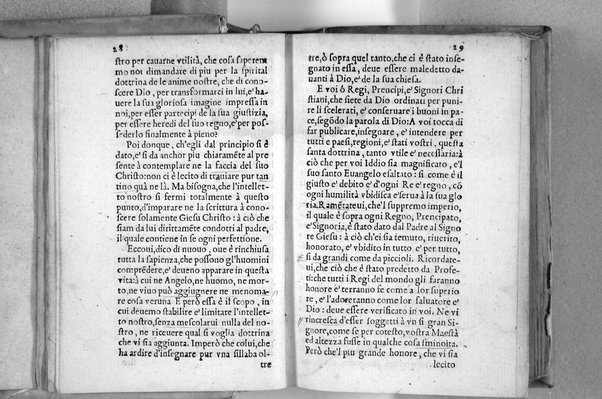 28
stro per cauarne vtilità, che cosa saperem
mo noi dimandare di piu per la spirital
dottrina de le anime nostre, che di cono
scere Dio, per transformarci in lui, e' ha-
uere la sua gloriosa imagine impressa in
noi, per esser partecipi de la sua giustizia,
per essere heredi del suo regno, e' per pos-
sederlo finalmente à pieno?
Poi donque, ch'egli dal principio si è
dato, e' si da anchor piu chiaramēte al pre
sente à contemplare ne la faccia del suo
Christo: non ci è lecito di trauiare pur tan
tino quà ne là. Ma bisogna, che l'intellet-
to nostro si fermi totalmente à questo
punto, d'imparare ne la scrittura à cono-
scere solamente Giesu Christo: à ciò che
siam da lui dirittamēte condotti al padre,
il quale contiene in se ogni perfettione.
Eccoui, dico di nuouo, oue è rinchiusa
tutta la sapienza, che possono gl'huomini
comprēdere, e' deueno apparare in questa
vita: à cui ne Angelo, ne huomo, ne mor-
to, ne viuo può aggiugnere ne menoma-
re cosa veruna. E però essa è il scopo, in
cui deuemo stabilire e' limitare l'intellet-
to nostro, senza mescolarui nulla del no-
stro, ne riceuere qual si voglia dottrina
che vi sia aggiunta. Imperò che colui, che
ha ardire d'insegnare pur vna sillaba ol-
tre
29
tre, ò sopra quel tanto, che ci è stato inse-
gnato in essa, deue essere maledetto da-
uanti à Dio, e' de la sua chiesa.
E voi ò Regi, Prencipi, e' Signori Chri
stiani, che siete da Dio ordinati per puni-
re li scelerati, e' conseruare i buoni in pa-
ce, segōdo la parola di Dio: A voi tocca di
far publicare, insegnare, e' intendere per
tutti e paesi, regioni, e' stati vostri, questa
santa dottrina, tanto vtile e' necessaria: à
ciò che per voi Iddio sia magnificato, e' l
suo santo Euangelo esaltato: si come è il
giusto e' debito e' d'ogni Re e' regno, cō
ogni humilità vbidisca e' serua à la sua glo
ria. Ramētateui, che'l suppremo imperio,
il quale è sopra ogni Regno, Prencipato,
e' Signoria, è stato dato dal Padre al Signo
re Giesu: à ciò ch'ei sia temuto, riuerito,
honorato, e' vbidito in tutto e' per tutto,
si da grandi come da piccioli. Ricordate-
ui, che ciò che è stato predetto da Profe-
ti: che tutti i Regi del mondo gli faranno
honore e' terranno se come a lor superio
re, e' l'adoreranno come lor saluatore e'
Dio: deue essere verificato in voi. Ne vi
rincresca d'esser soggetti à vn si gran Si-
gnore, come se per cotesto, vostra Maestà
ed altezza fusse in qualche cosa sminoita.
Però che'l piu grande honore, che vi sia
lecito